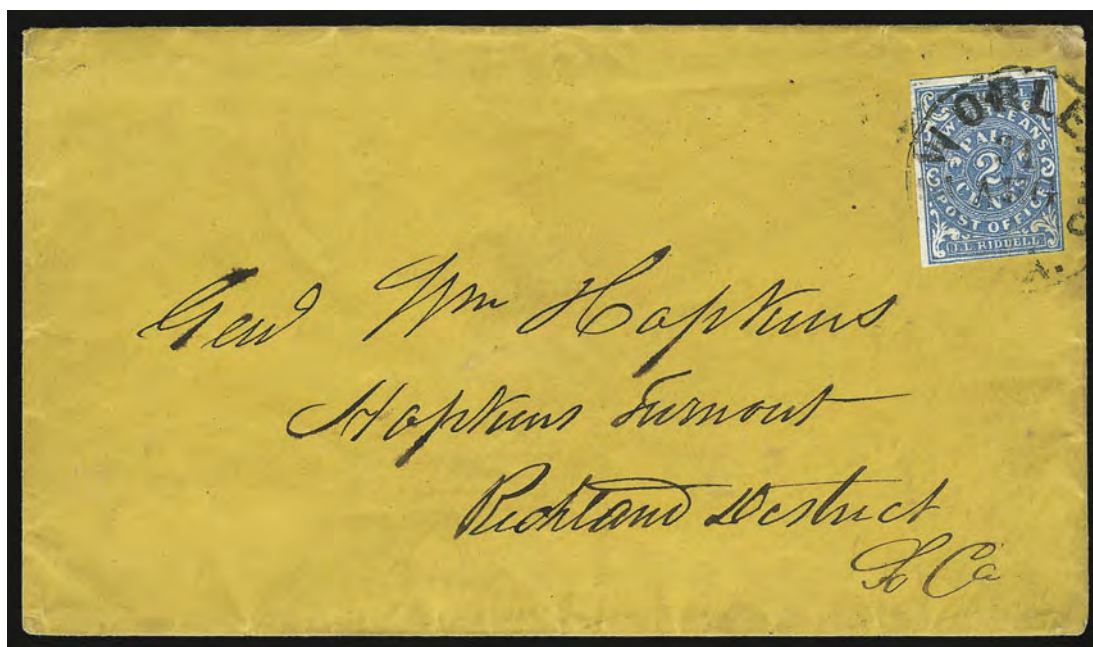 N ORLEANS
PAID
2
CENTS
POST OFFICE
J.L. RIDDELL
Genl Wm Hopkins
Hopkins Turnout
Richland District
So Ca